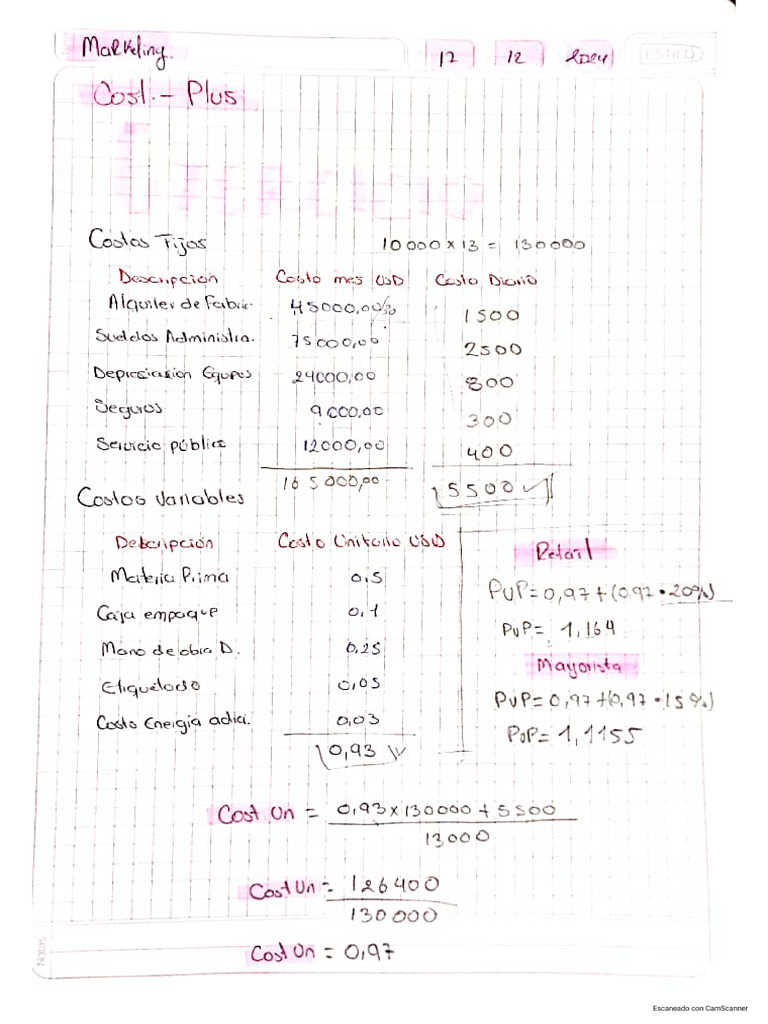 Marketing.
12 12 2024
ESTILO
Cost - Plus
Ejercicio
Costos Fijos 10000 x 13 = 130000
Descripción Costo mes USD Costo Diario
Alquiler de Fabric. 45000,00/30 1500
Sueldos Administra. 75000,00 2500
Depreciacion Equpos 24000,00 800
Seguros 9000,00 300
Servicio público 12000,00 400
165000,00 5500
Costos Variables
Descripción Costo Unitario USD
Materia Prima 0.5
Caja empaque 0,1
Mano de obra D. 0,25
Etiquetado 0,05
Costo Energía adici. 0,03
0,93
Retail
PVP = 0,97+(0,97 • 20%)
PVP = 1,164
Mayorista
PVP = 0,97+(0,97 • 15%)
PVP = 1,1155
Cost Un = 0,93 x 130000 + 5500
13000
Cost Un = 126400
130000
Cost Un = 0,97
Notas
Escaneado con CamScanner